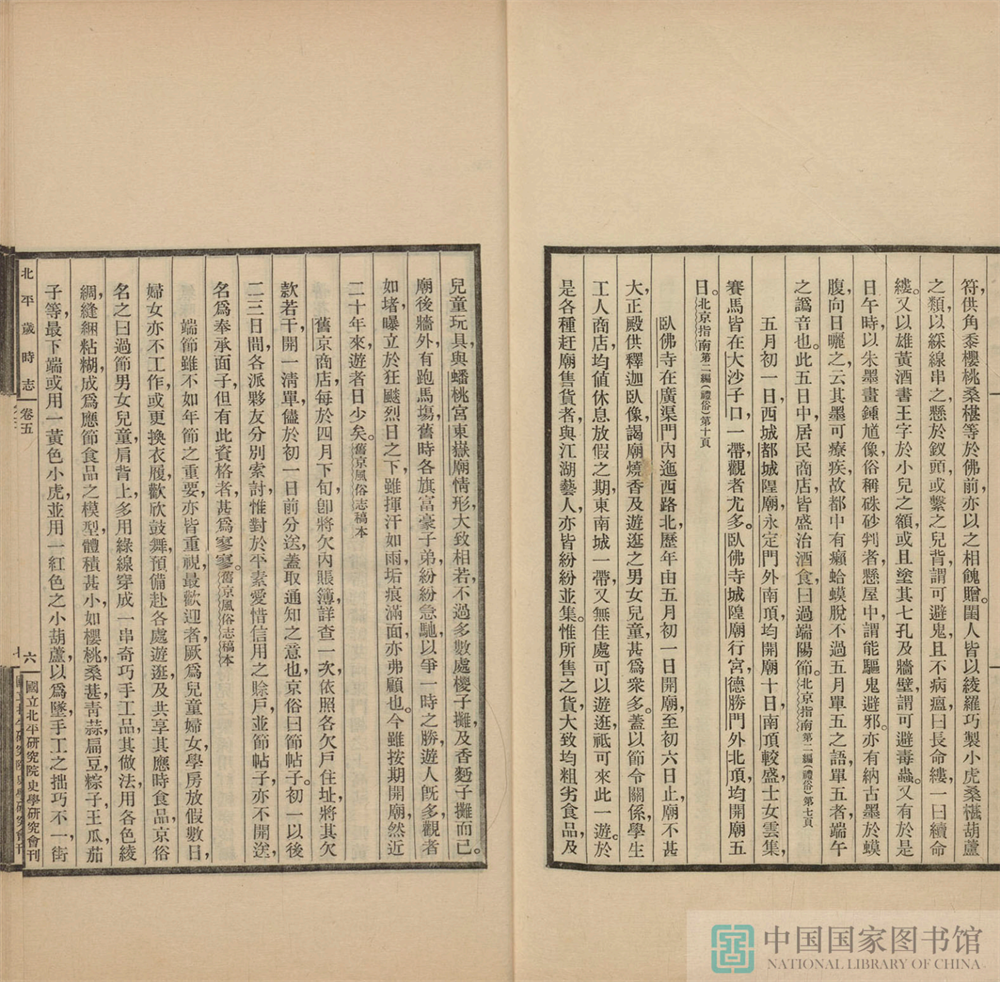 符供角黍櫻桃桑椹等於佛前，亦以之相餽贈。閨人皆以綾羅巧製小虎桑椹葫蘆
之類，以綵線串之，懸於釵頭，或繫之兒背，謂可避鬼，且不病瘟，曰長命縷，一曰續命
縷。又以雄黃酒書王字於小兒之額，或且塗其七孔及牆壁，謂可避毒蟲。又有於是
日午時以朱墨畫鍾馗像，俗稱硃砂判者，懸屋中，謂能驅鬼避邪。亦有納古墨於蟆
腹，向日曬之，云其墨可療疾，故都中有癩蛤蟆脫不過五月單五之語，單五者，端午
之譌音也。此五日中，居民商店，皆盛治酒食，曰過端陽節。北京指南第二編（禮俗）第七頁
五月初一日，西城都城隍廟，永定門外南頂，均開廟十日，南頂較盛，士女雲集，
賽馬皆在大沙子口一帶，觀者尤多。臥佛寺，城隍廟行宮，德勝門外北頂，均開廟五
日。北京指南第二編（禮俗）第十頁
臥佛寺在廣渠門內迤西路北，歷年由五月初一日開廟，至初六日止，廟不甚
大，正殿供釋迦臥像，謁廟燒香及遊逛之男女兒童，甚爲衆多。蓋以節令關係，學生
工人商店，均値休息放假之期，東南城一帶，又無佳處可以遊逛，祗可來此一遊。於
是各種赶廟售貨者，與江湖藝人，亦皆紛紛並集。惟所售之貨，大致均粗劣食品，及
兒童玩具，與蟠桃宮東嶽廟情形，大致相若，不過多數處櫻子攤，及香麪子攤而已。
廟後牆外，有跑馬塲，舊時各旗富豪子弟，紛紛急馳，以爭一時之勝，遊人旣多，觀者
如堵，曝立於狂飈烈日之下，雖揮汗如雨，垢痕滿面，亦弗顧也。今雖按期開廟，然近
二十年來，遊者日少矣。舊京風俗志稿本
舊京商店，每於四月下旬，卽將欠內賬簿詳查一次，依照各欠戶住址，將其欠
款若干，開一淸單，儘於初一日前分送，蓋取通知之意也，京俗曰節帖子。初一以後
二三日間，各派夥友分別索討，惟對於平素愛惜信用之賒戶，並節帖子亦不開送，
名爲奉承面子，但有此資格者，甚爲寥寥。舊京風俗志稿本
端節雖不如年節之重要，亦皆重視，最歡迎者，厥爲兒童婦女，學房放假數日，
婦女亦不工作，或更換衣履，歡欣鼓舞，預備赴各處遊逛，及共享其應時食品，京俗
名之曰過節。男女兒童，肩背上多用綠線穿成一串奇巧手工品，其做法用各色綾
綢縫綑粘糊，成爲應節食品之模型，體積甚小，如櫻桃，桑葚，靑蒜，扁豆，粽子，王瓜，茄
子等，最下端或用一黃色小虎，並用一紅色之小葫蘆，以爲墜，手工之拙巧不一，街
北平歲時志 卷五
六 國立北平研究院史學研究會刊
中国国家图书馆
NATIONAL LIBRARY OF CHINA